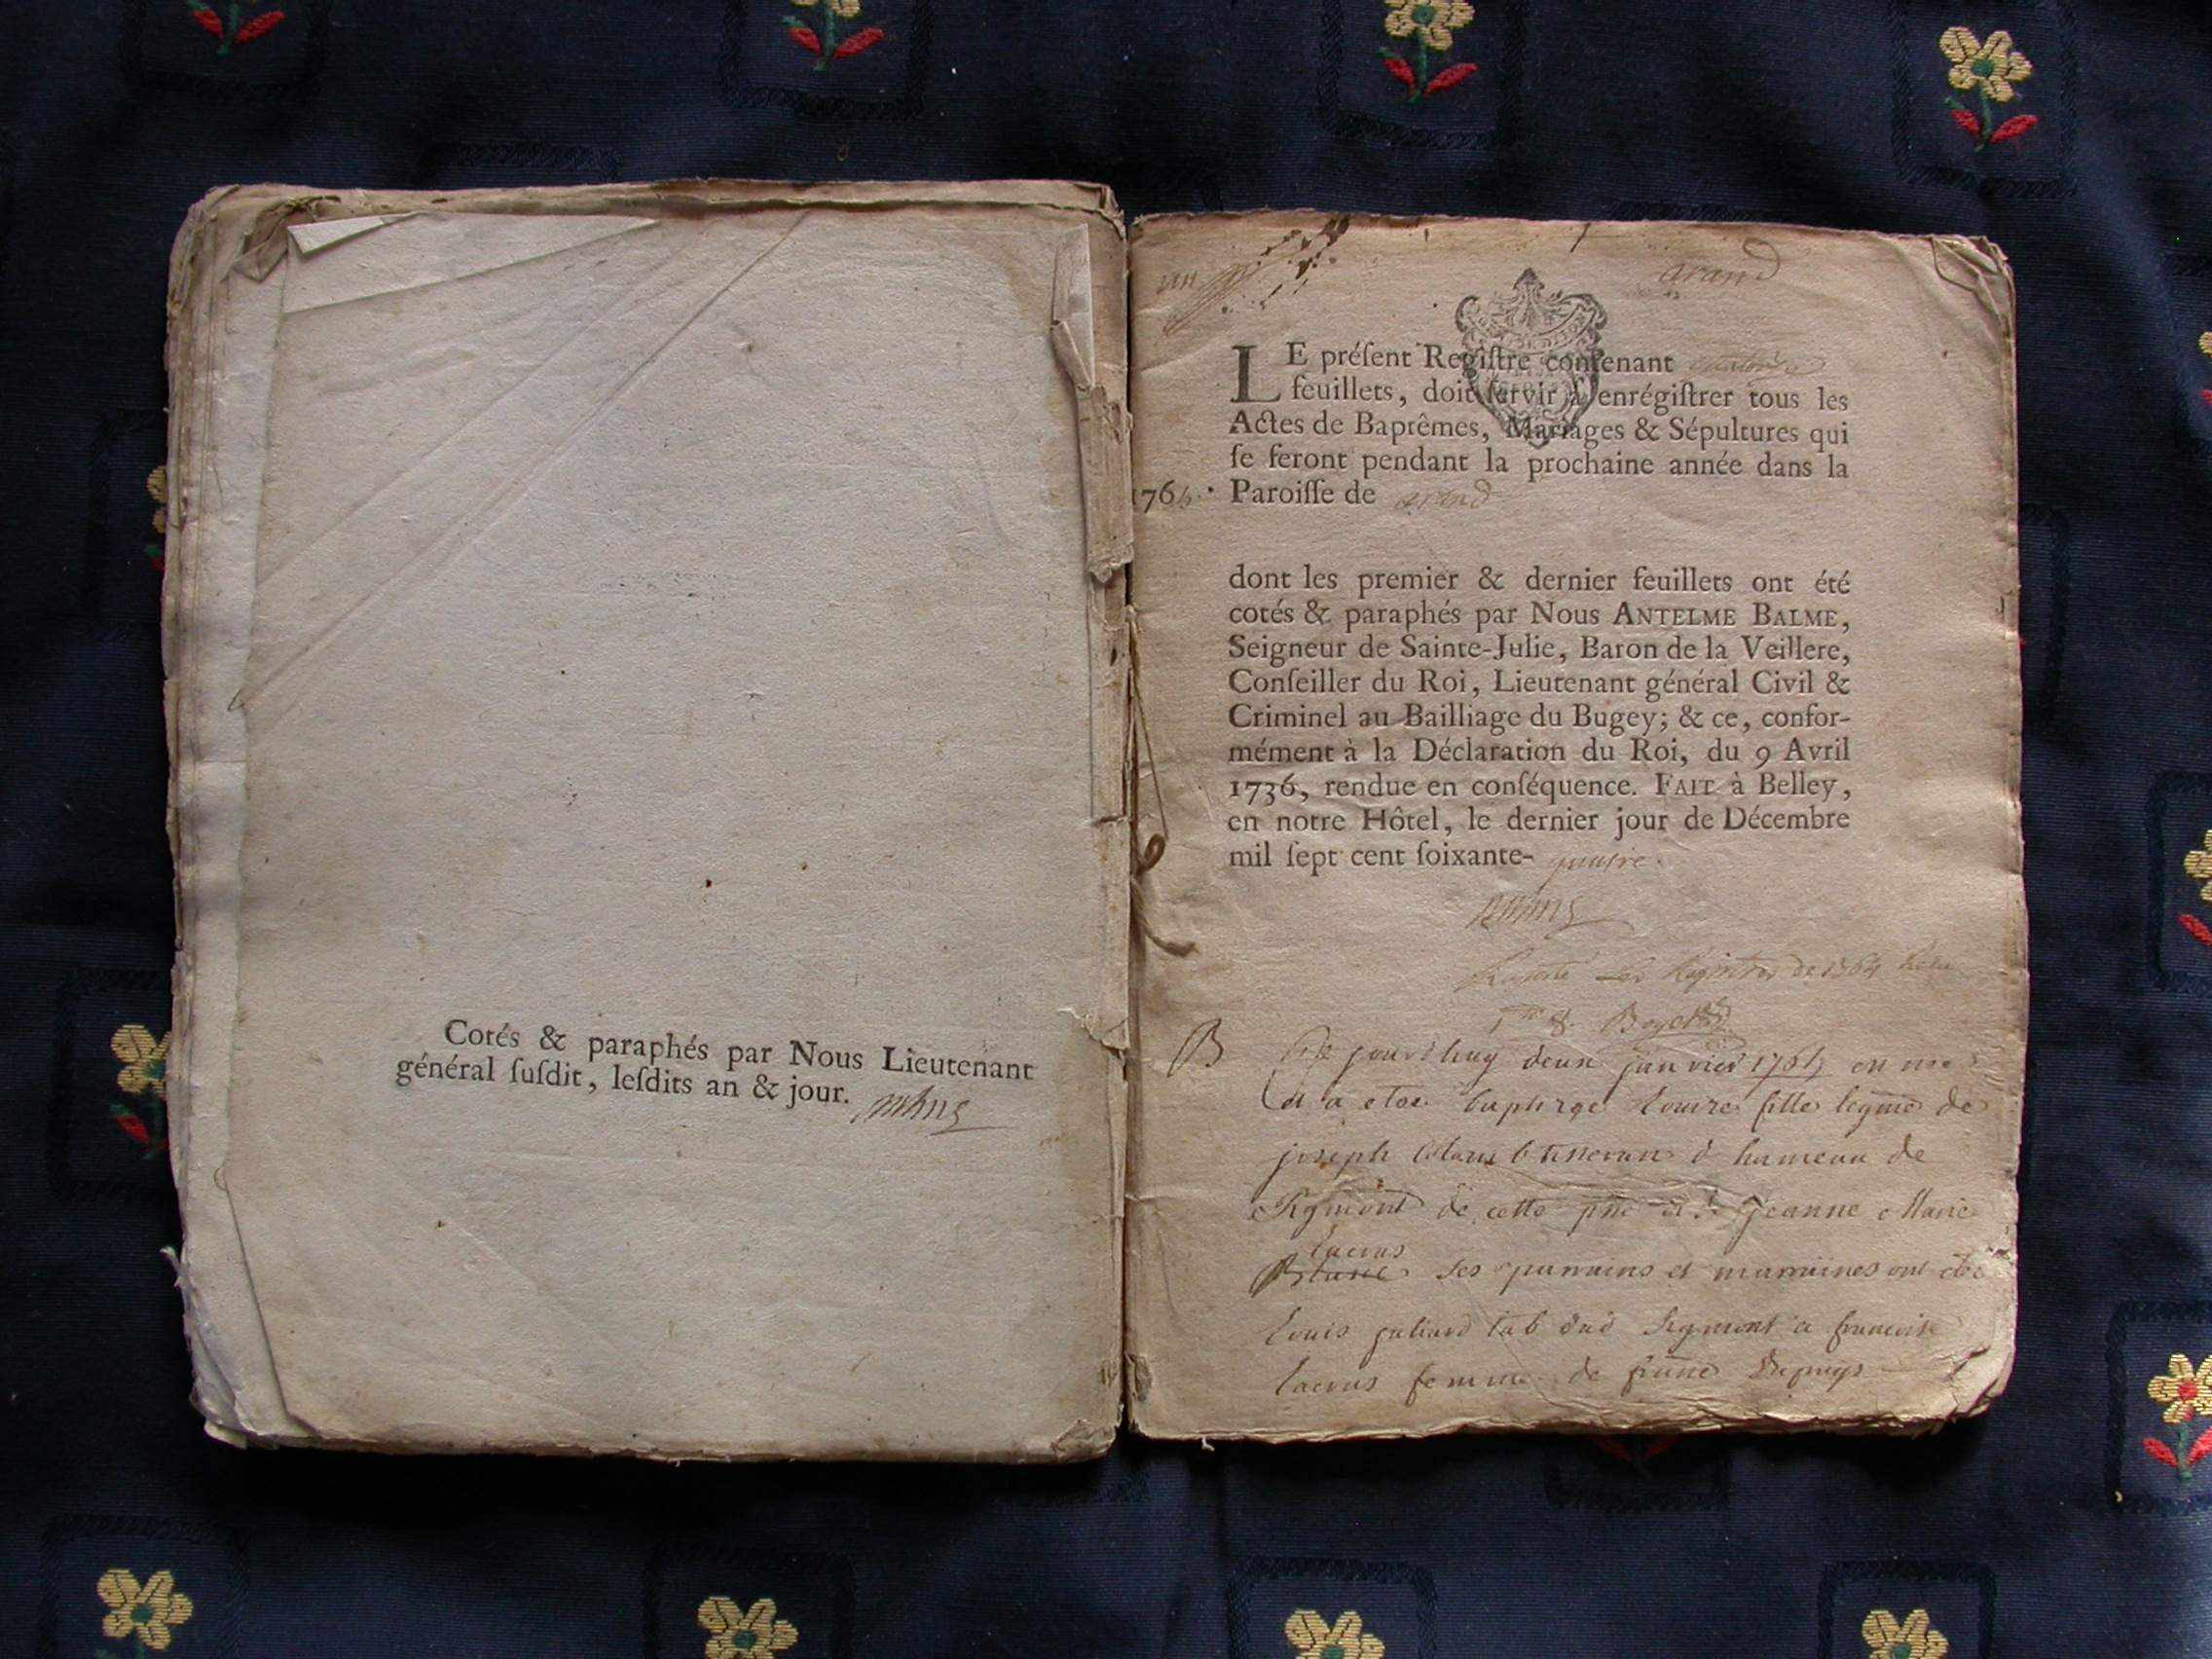 Cotés & paraphés par Nous Lieutenant
général ſuſdit, leſdits an & jour.
un
arand
LE préſent Regiſtre contenant
feuillets, doit ſervir à enrégiſtrer tous les
Actes de Baptêmes, Mariages & Sépultures qui
ſe feront pendant la prochaine année dans la
Paroiſſe de arand
dont les premier & dernier feuillets ont été
cotés & paraphés par Nous ANTELME BALME,
Seigneur de Sainte-Julie, Baron de la Veillere,
Conſeiller du Roi, Lieutenant général Civil &
Criminel au Bailliage du Bugey; & ce, confor-
mément à la Déclaration du Roi, du 9 Avril
1736, rendue en conſéquence. FAIT à Belley,
en notre Hôtel, le dernier jour de Décembre
mil ſept cent ſoixante- quatre.
Les Registres de 1764
B
jourdhuy deux janvier 1765 en
a etee louise fille de
joseph hameau de
de cette Jeanne Marie
lacrus
ses parrains et marraines ont etee
louis francoise
lacrus femme de